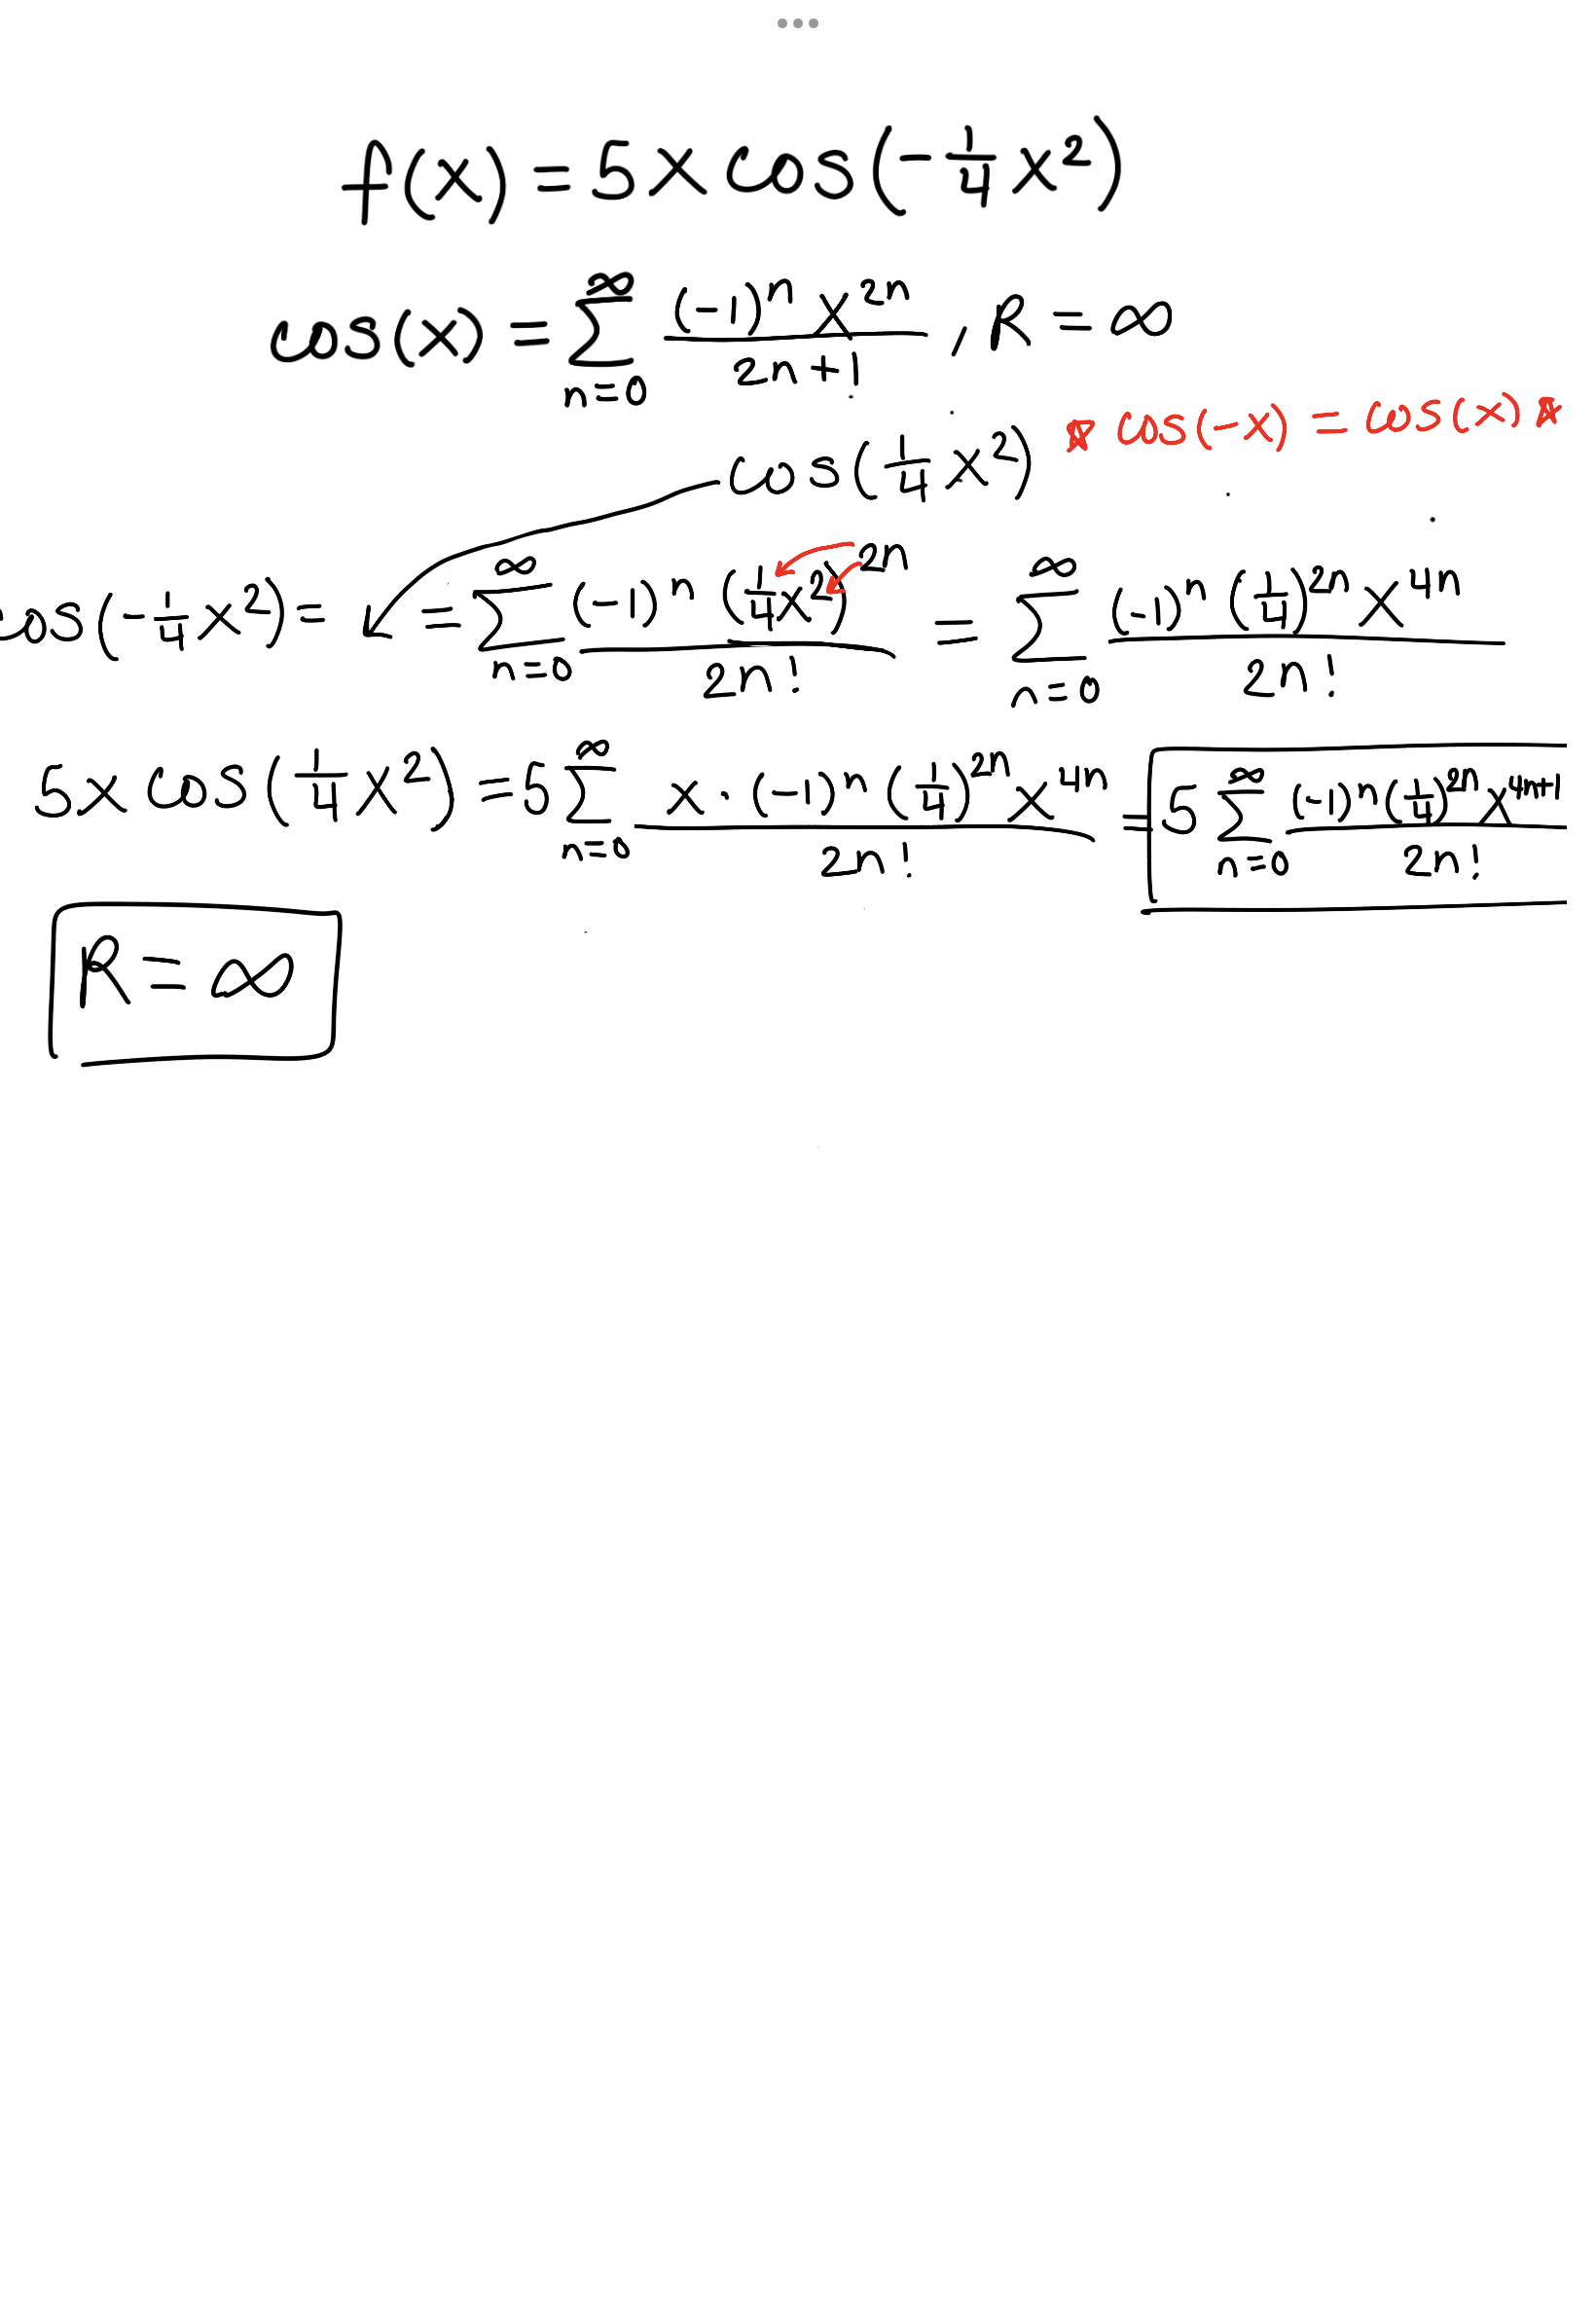 f(x) = 5x cos(-1/4 x²)
cos(x) = ∑_{n=0}^{∞} (-1)ⁿ x²ⁿ / 2n+1 , R = ∞
☆ cos(-x) = cos(x) ☆
cos(1/4 x²)
cos(-1/4 x²) = = ∑_{n=0}^{∞} (-1)ⁿ (1/4 x²)²ⁿ / 2n! = ∑_{n=0}^{∞} (-1)ⁿ (1/4)²ⁿ x⁴ⁿ / 2n!
5x cos(1/4 x²) = 5 ∑_{n=0}^{∞} x · (-1)ⁿ (1/4)²ⁿ x⁴ⁿ / 2n! = 5 ∑_{n=0}^{∞} (-1)ⁿ (1/4)²ⁿ x⁴ⁿ⁺¹ / 2n!
R = ∞